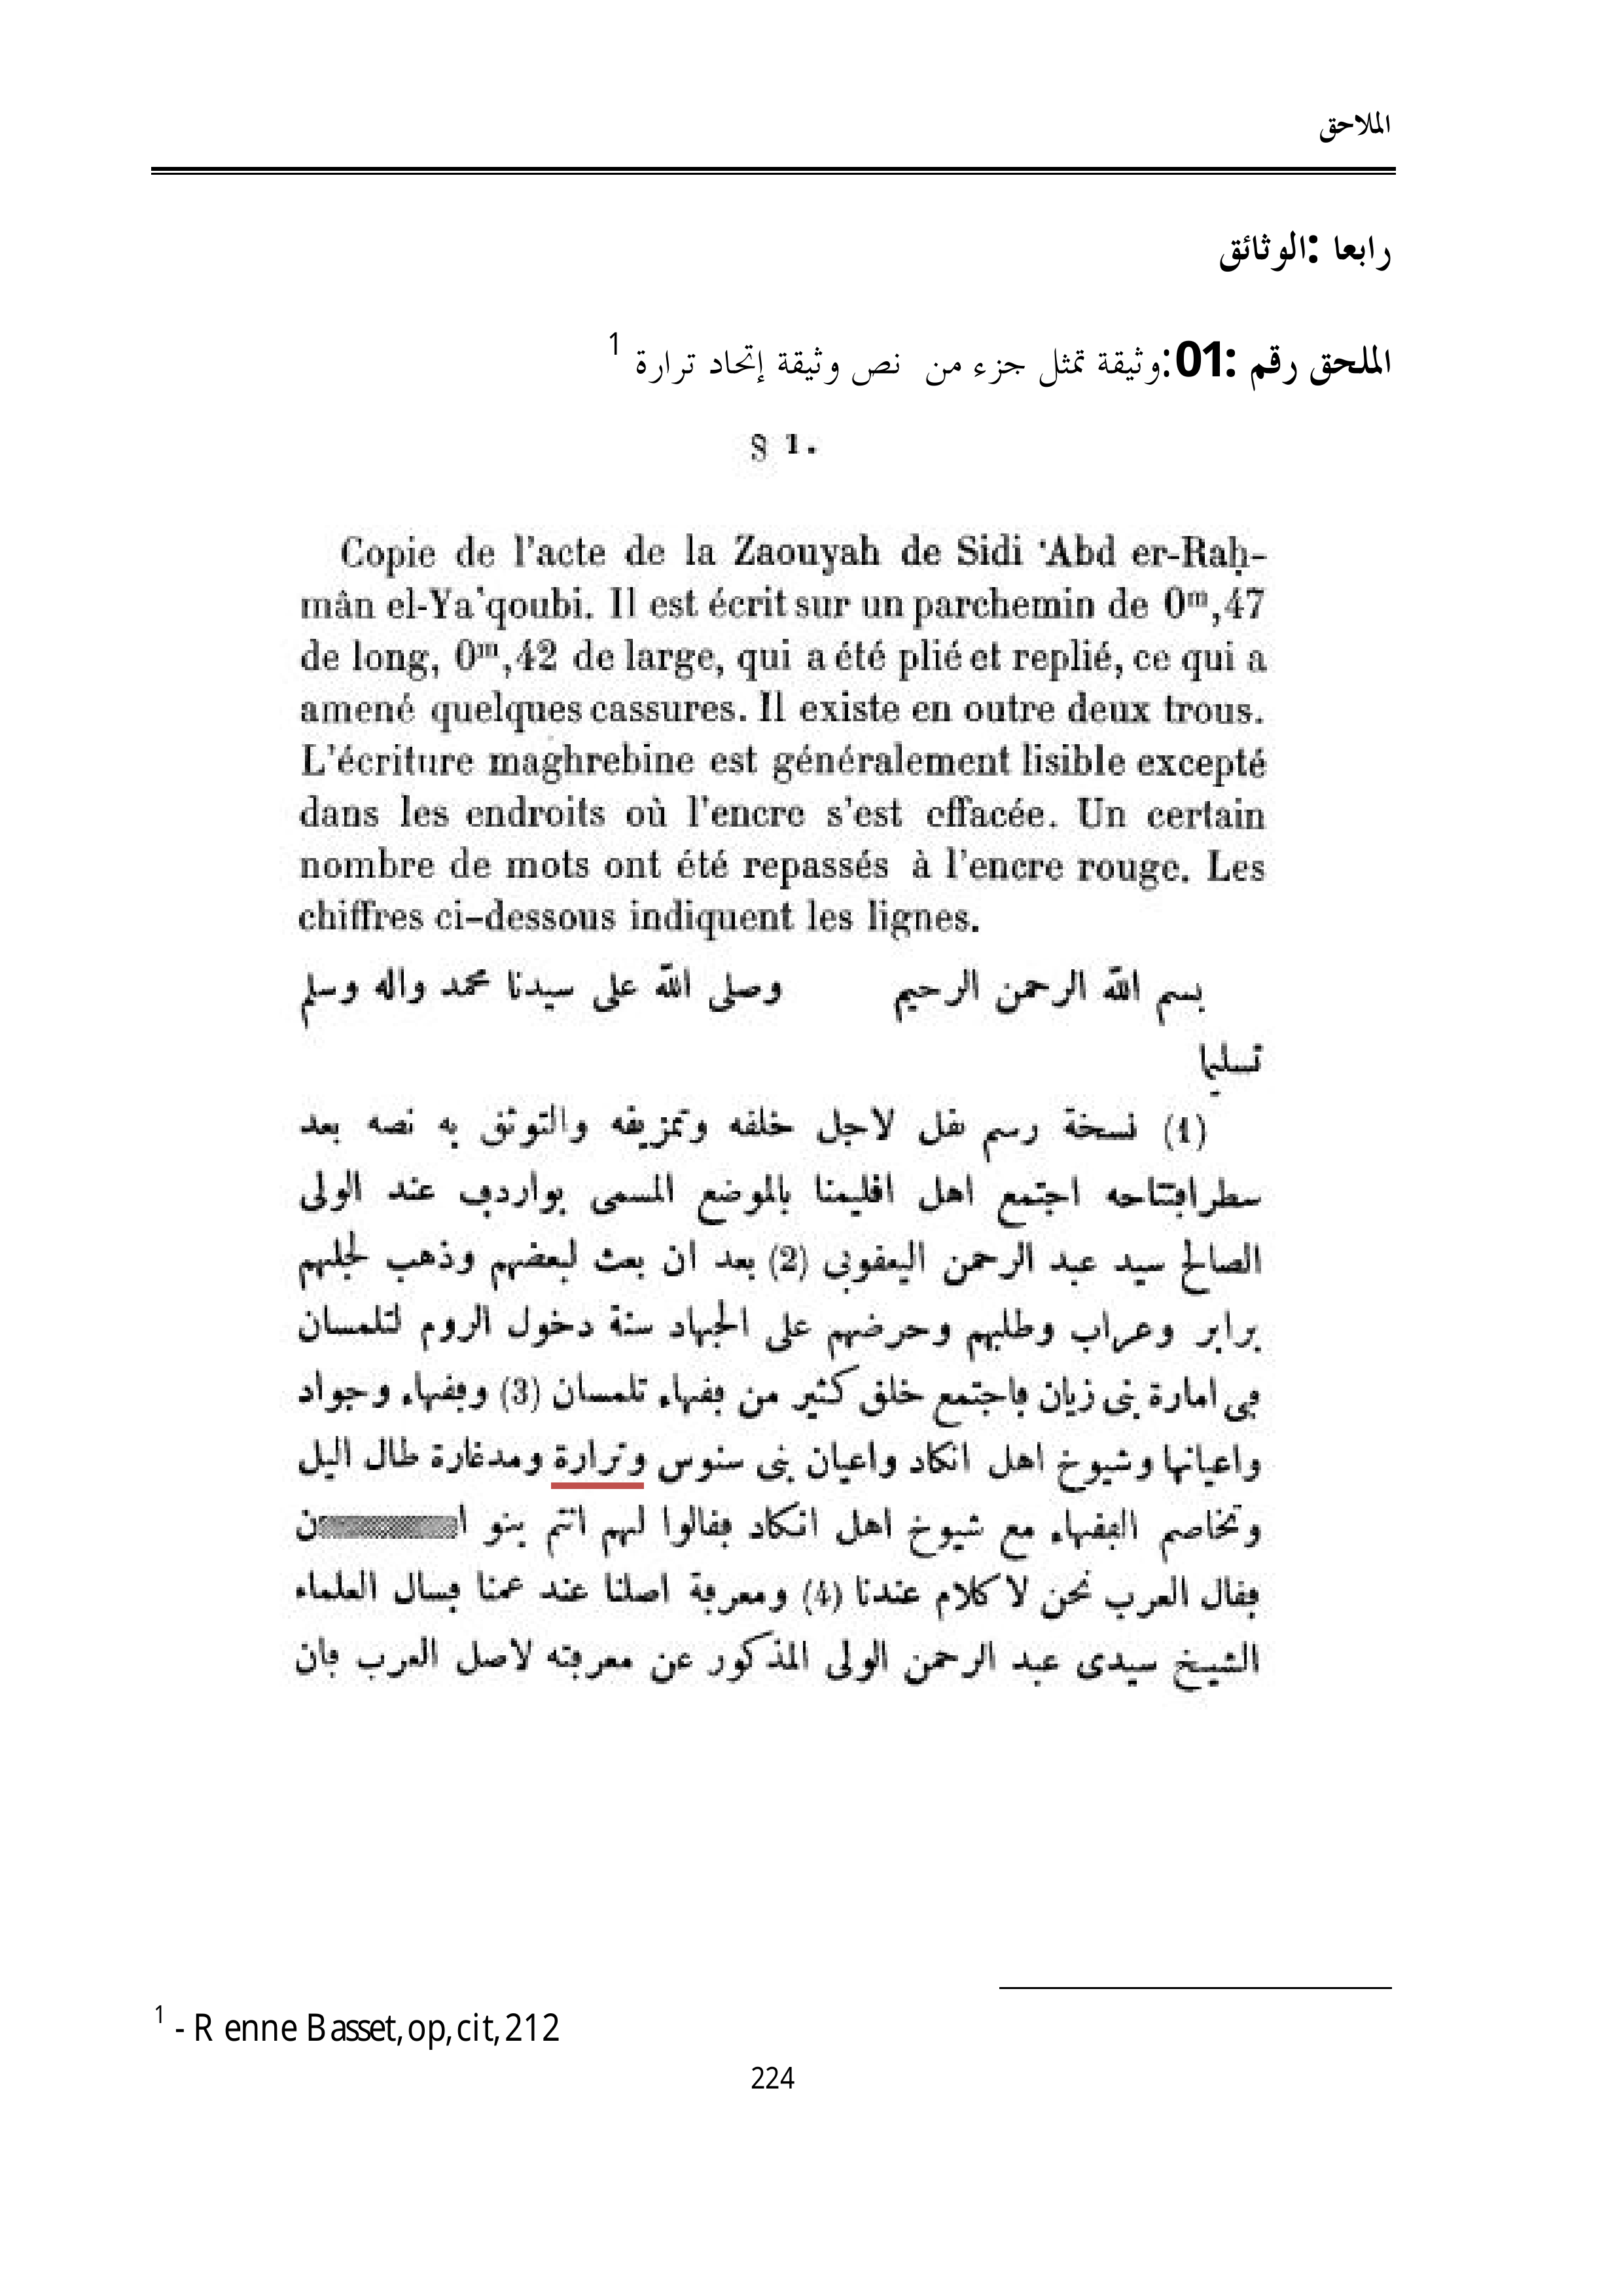 الملاحق
رابعا :الوثائق
الملحق رقم :01:وثيقة تمثل جزء من نص وثيقة إتحاد ترارة 1
§ 1.
Copie de l'acte de la Zaouyah de Sidi ʿAbd er-Raḥ-
mân el-Yaʿqoubi. Il est écrit sur un parchemin de 0m,47
de long, 0m,42 de large, qui a été plié et replié, ce qui a
amené quelques cassures. Il existe en outre deux trous.
L'écriture maghrebine est généralement lisible excepté
dans les endroits où l'encre s'est effacée. Un certain
nombre de mots ont été repassés à l'encre rouge. Les
chiffres ci-dessous indiquent les lignes.
بسم الله الرحمن الرحيم وصلى الله على سيدنا محمد واله وسلم
تسليما
(1) نسخة رسم نفل لاجل خلفه وتمزيفه والتوثق به نصه بعد
سطر ابتتاحه اجتمع اهل افليمنا بالموضع المسمى بواردب عند الولى
الصالح سيد عبد الرحمن اليعفوبى (2) بعد ان بعث لبعضهم وذهب لجلهم
برابر وعراب وطلبهم وحرضهم على الجهاد سنة دخول الروم لتلمسان
ڢى امارة بنى زيان ڢاجتمع خلق كثير من ڢفهاء تلمسان (3) وڢفهاء وجواد
واعيانها وشيوخ اهل انكاد واعيان بنى سنوس وترارة ومدغارة طال اليل
وتخاصم الڢفهاء مع شيوخ اهل انكاد ڢفالوا لهم انتم بنو ا ن
ڢفال العرب نحن لا كلام عندنا (4) ومعرڢة اصلنا عند عمنا ڢسال العلماء
الشيخ سيدى عبد الرحمن الولى المذكور عن معرڢته لاصل العرب ڢان
1 - Renne Basset,op,cit,212
224